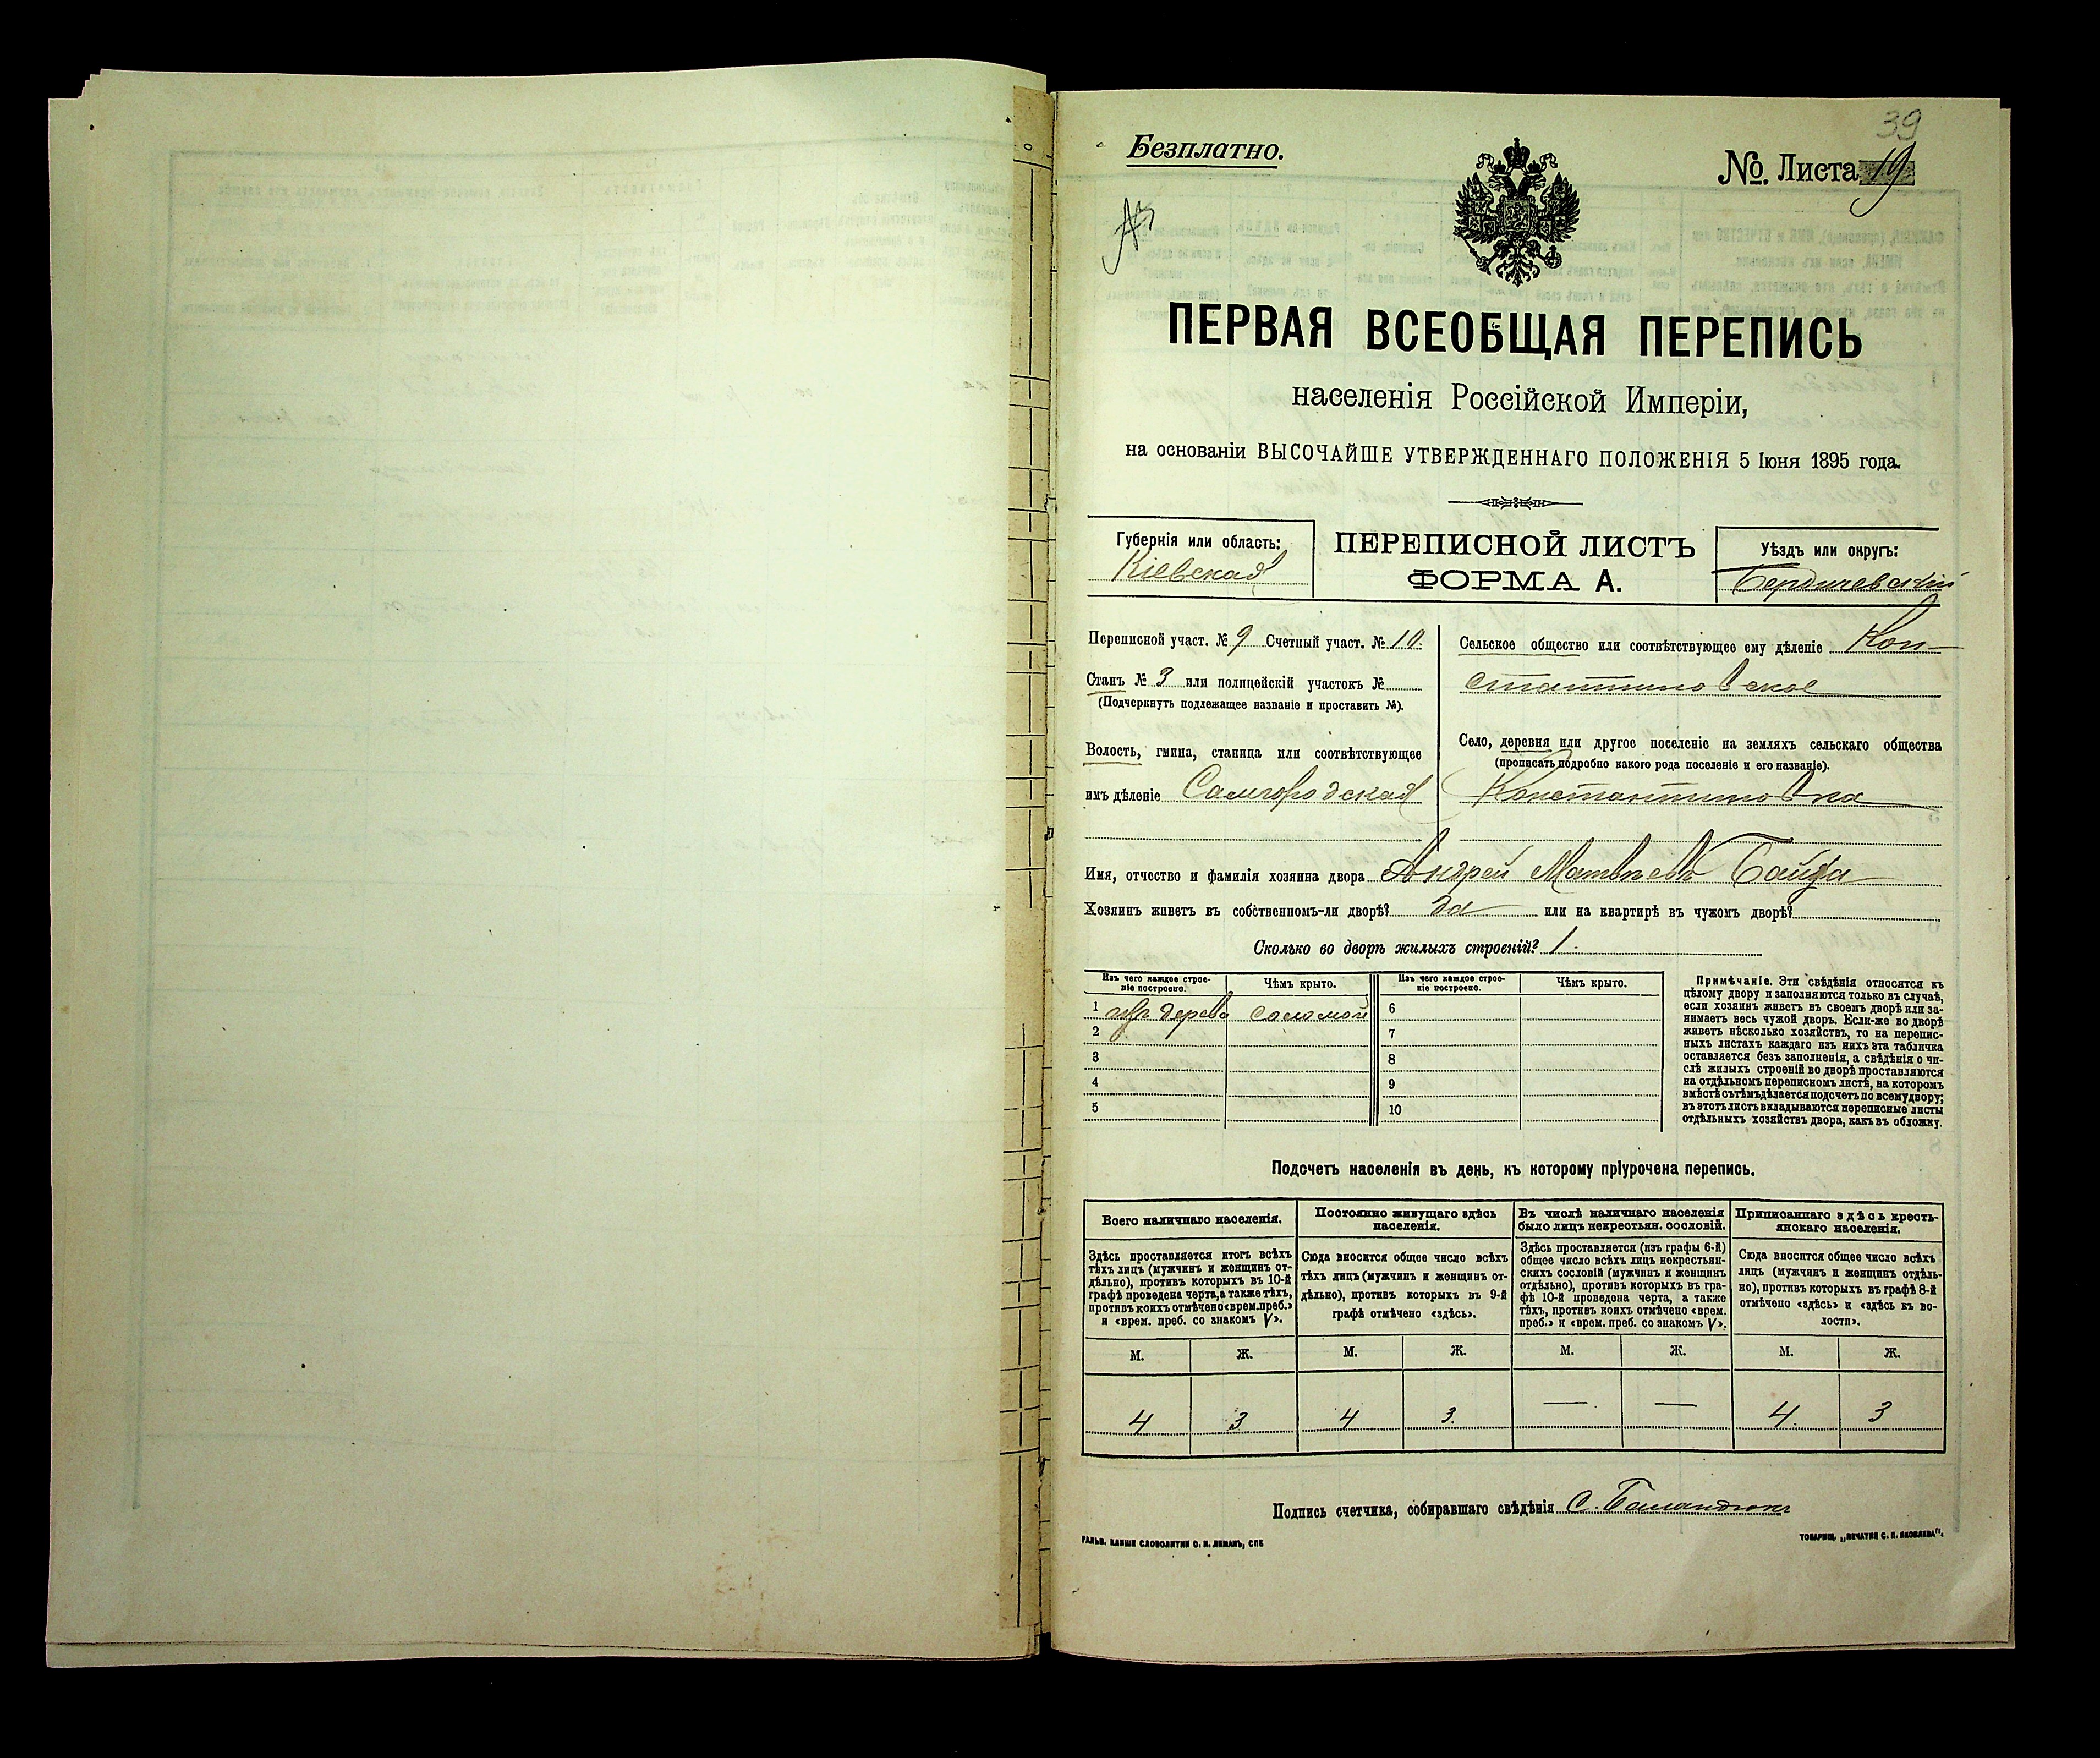 39
Безплатно.
№. Листа 19
ПЕРВАЯ ВСЕОБЩАЯ ПЕРЕПИСЬ
населенія Россійской Имперіи,
на основаніи ВЫСОЧАЙШЕ УТВЕРЖДЕННАГО ПОЛОЖЕНІЯ 5 Іюня 1895 года.
Губернія или область:
Кіевская
ПЕРЕПИСНОЙ ЛИСТЪ
ФОРМА А.
Уѣздъ или округъ:
Бердичевскій
Переписной участ. № 9 Счетный участ. № 10.
Станъ № 3 или полицейскій участокъ №
(Подчеркнуть подлежащее названіе и проставить №).
Волость, гмина, станица или соотвѣтствующее
имъ дѣленіе Самгородская
Сельское общество или соотвѣтствующее ему дѣленіе Кон-
стантиновское
Село, деревня или другое поселеніе на земляхъ сельскаго общества
(прописать подробно какого рода поселеніе и его названіе).
Константиновка
Имя, отчество и фамилія хозяина двора Андрей Матвѣевъ Байда
Хозяинъ живетъ въ собственномъ-ли дворѣ? да или на квартирѣ въ чужомъ дворѣ?
Сколько во дворѣ жилыхъ строеній? 1.
Изъ чего каждое строе-
ніе построено.
Чѣмъ крыто.
Изъ чего каждое строе-
ніе построено.
Чѣмъ крыто.
1 изъ дерева соломой 6
2 7
3 8
4 9
5 10
Примѣчаніе. Эти свѣдѣнія относятся къ
цѣлому двору и заполняются только въ случаѣ,
если хозяинъ живетъ въ своемъ дворѣ или за-
нимаетъ весь чужой дворъ. Если-же во дворѣ
живетъ нѣсколько хозяйствъ, то на перепис-
ныхъ листахъ каждаго изъ нихъ эта табличка
оставляется безъ заполненія, а свѣдѣнія о чи-
слѣ жилыхъ строеній во дворѣ проставляются
на отдѣльномъ переписномъ листѣ, на которомъ
вмѣстѣ съ тѣмъ дѣлается подсчетъ по всему двору;
въ этотъ листъ вкладываются переписные листы
отдѣльныхъ хозяйствъ двора, какъ въ обложку.
Подсчетъ населенія въ день, къ которому пріурочена перепись.
Всего наличнаго населенія.
Здѣсь проставляется итогъ всѣхъ
тѣхъ лицъ (мужчинъ и женщинъ от-
дѣльно), противъ которыхъ въ 10-й
графѣ проведена черта, а также тѣхъ,
противъ коихъ отмѣчено «врем. преб.»
и «врем. преб. со знакомъ V».
Постоянно живущаго здѣсь
населенія.
Сюда вносится общее число всѣхъ
тѣхъ лицъ (мужчинъ и женщинъ от-
дѣльно), противъ которыхъ въ 9-й
графѣ отмѣчено «здѣсь».
Въ числѣ наличнаго населенія
было лицъ некрестьян. сословій.
Здѣсь проставляется (изъ графы 6-й)
общее число всѣхъ лицъ некрестьян-
скихъ сословій (мужчинъ и женщинъ
отдѣльно), противъ которыхъ въ гра-
фѣ 10-й проведена черта, а также
тѣхъ, противъ коихъ отмѣчено «врем.
преб.» и «врем. преб. со знакомъ V».
Приписаннаго здѣсь кресть-
янскаго населенія.
Сюда вносится общее число всѣхъ
лицъ (мужчинъ и женщинъ отдѣль-
но), противъ которыхъ въ графѣ 8-й
отмѣчено «здѣсь» и «здѣсь къ во-
лости».
М. Ж. М. Ж. М. Ж. М. Ж.
4 3 4 3. — — 4. 3
Подпись счетчика, собиравшаго свѣдѣнія С.
ГАЛЬВ. КЛИШИ СЛОВОЛИТНИ О. И. ЛЕМАНЪ, СПБ
ТОВАРИЩ. „ПЕЧАТНЯ С. П. ЯКОВЛЕВА“.